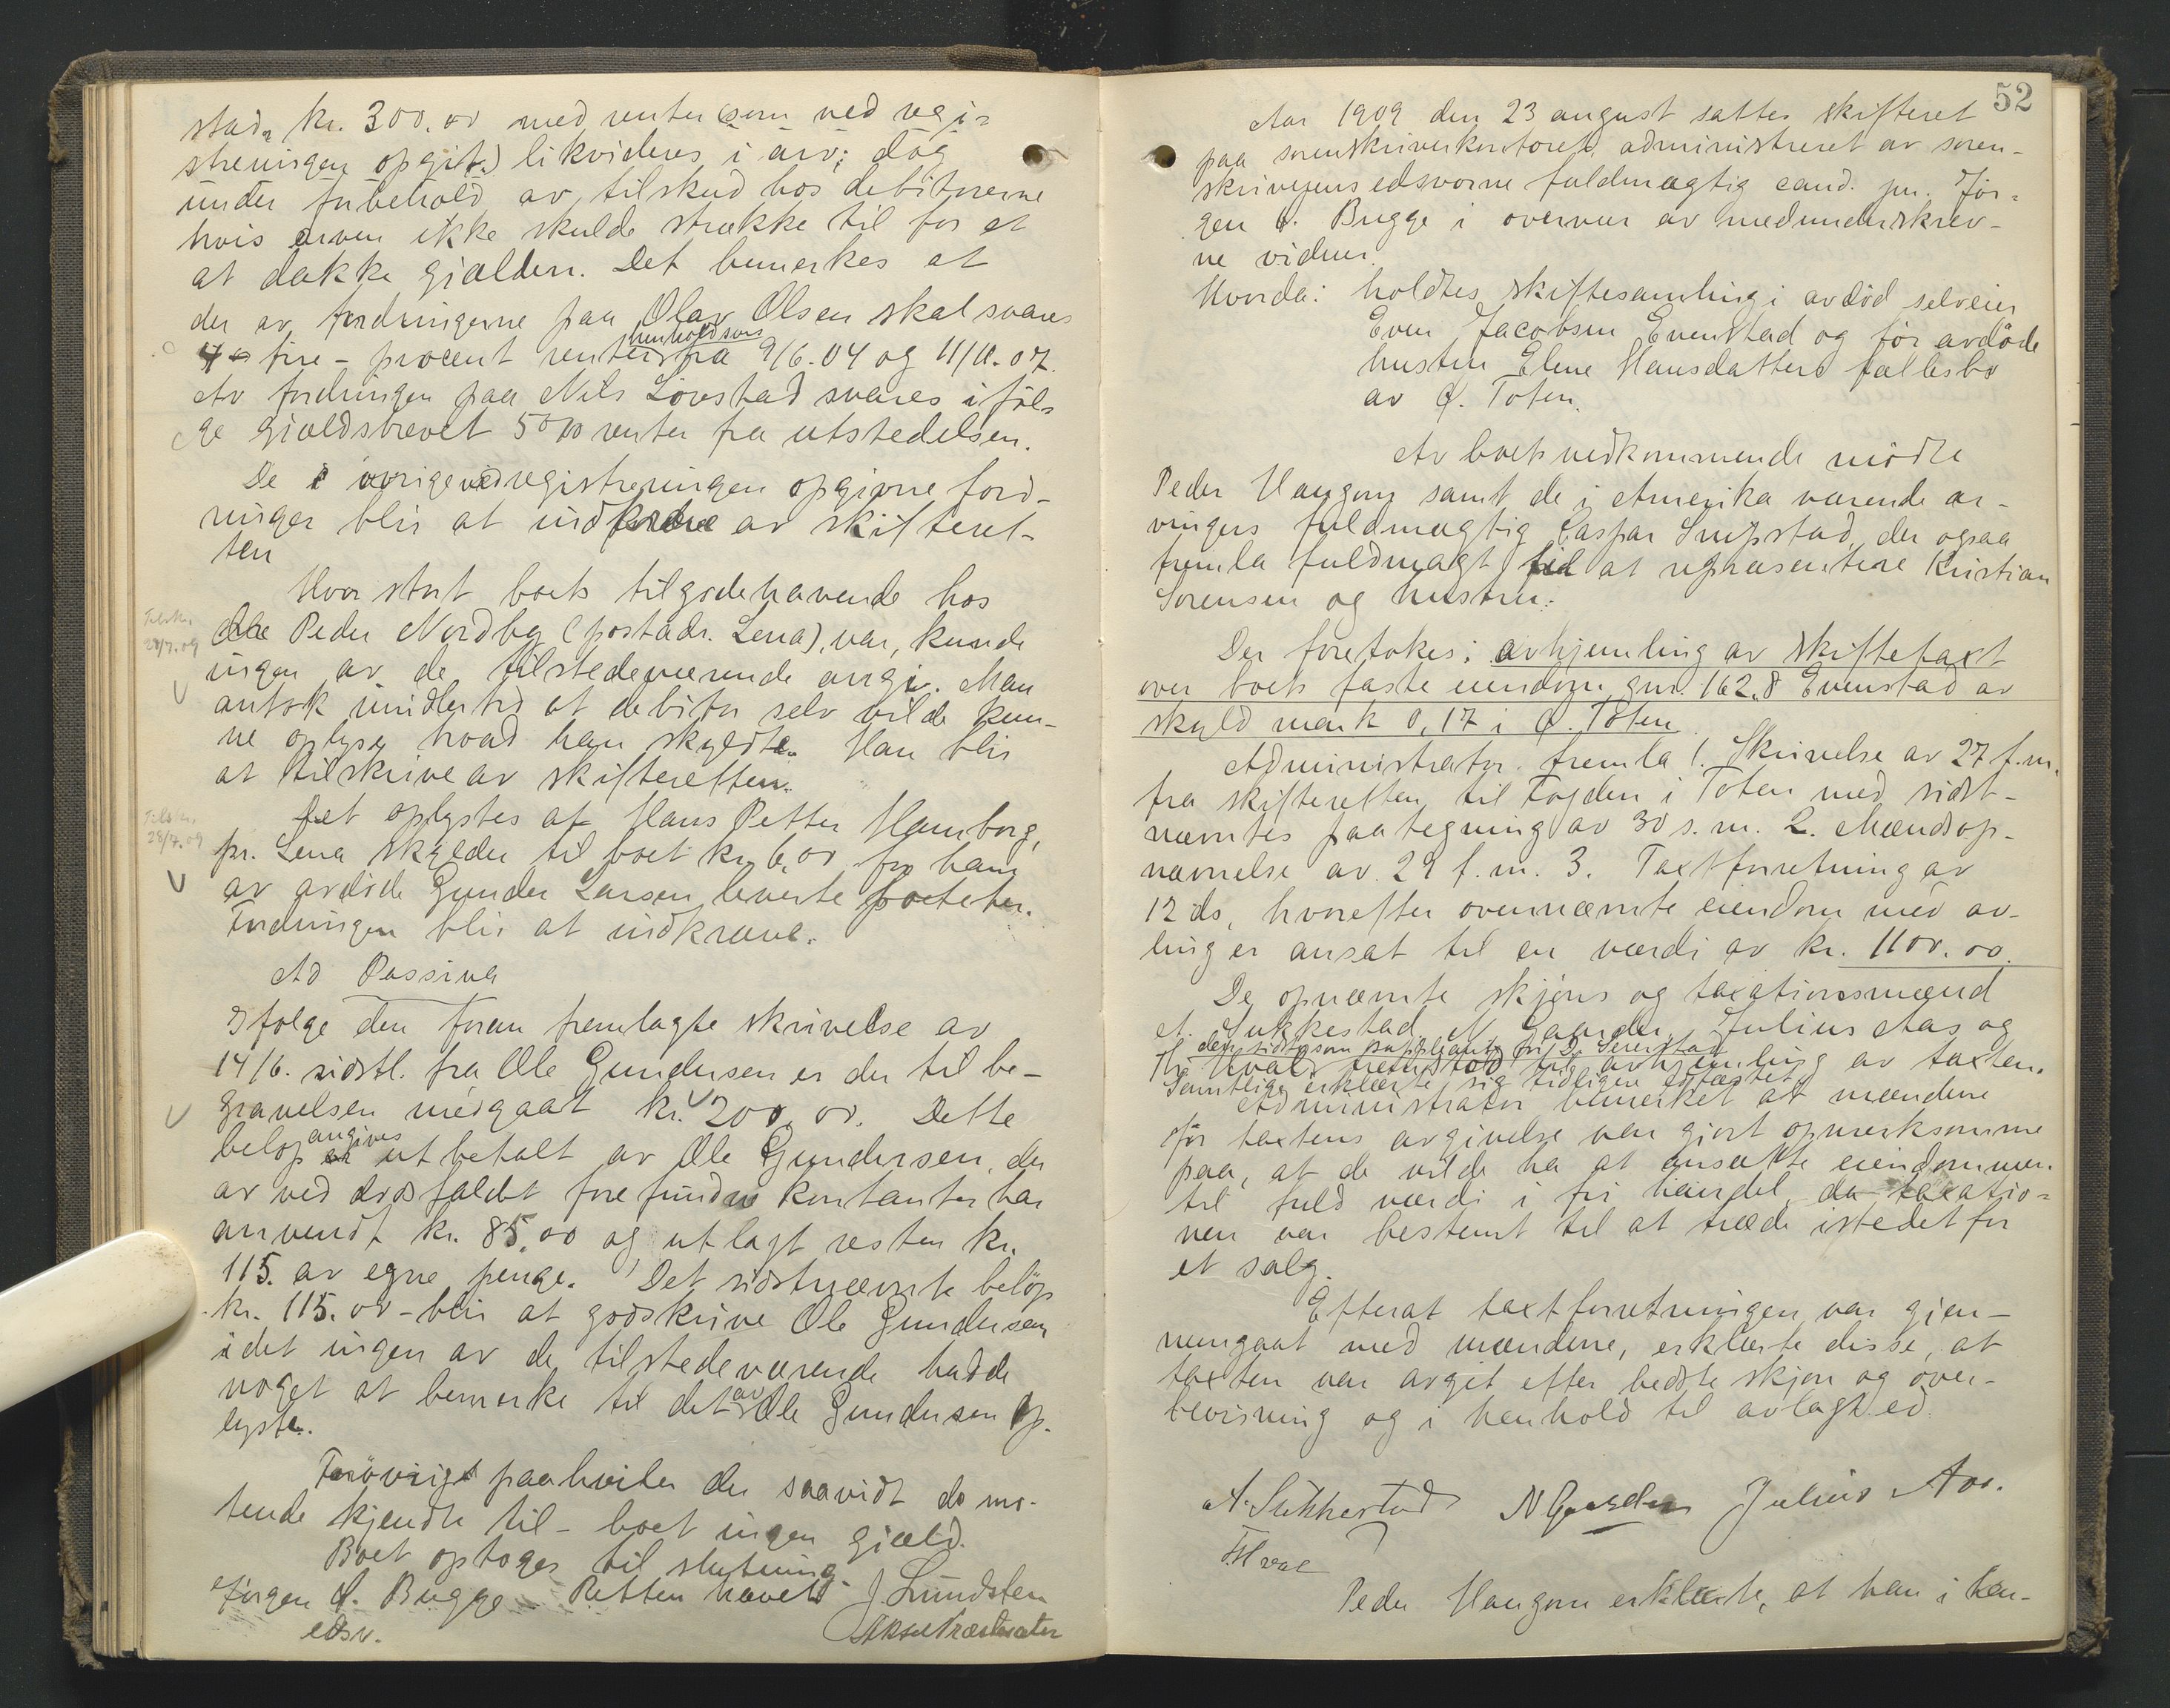 stad, kr. 300.00 med renter (som ved regi-
streringen opgit) likvideres i arv; dog
under forbehold av tilskud hos debitorerne
hvis arven ikke skulde strække til for at
at dække gjælden. Det bemerkes at
der av fordringerne paa Olav Olsen skal svares
4 fire - procent renter henholdsvis fra 9/6.04 og 11/11.07.
Av fordringen paa Nils Lövstad svares iföl-
ge gjældsbrevet 5 % renter fra utstedelsen.
De i övrige ved registreringen opgivne ford-
ringer blir at indfordre av skifteret-
ten
Hvor stort boets tilgodehavende hos
Peder Nordby (postadr. Lena), var, kunde
Tilskr.
28/7.09
ingen av de tilstedeværende angi. Man
antok imidlertid at debitor selv vilde kun-
ne oplyse hvad han skyldte. Han blir
at tilskrive av skifteretten.
Det oplystes at Hans Petter Hamborg,
Tilskr.
28/7.09
pr. Lena skylder til boet kr. 6,00 for ham
av avdöde Gunder Larsen leverte poteter.
Fordringen blir at indkræve.
Ad Passiva
Ifölge den foran fremlagte skrivelse av
14/6. sidstl. fra Ole Gundersen er der til be-
gravelsen medgaat kr. 200,00. Dette
belöp angives utbetalt av Ole Gundersen, der
av ved dödsfaldet forefundne kontanter har
anvendt kr. 85,00 og utlagt resten kr.
115. av egne penge. Det sidstnævnte belöp
kr. 115.00 - blir at godskrive Ole Gundersen
idet ingen av de tilstedeværende hadde
noget at bemerke til det av Ole Gundersen op-
lyste.
Forövrigt paahviler der saavidt de mö-
tende kjendte til - boet ingen gjæld.
Boet optoges til slutning.
Retten hævet
Jörgen H. Bugge J. Lundsten
edsv. Aksel Træstæter
52
Aar 1909 den 23 august sattes skifteret
paa sorenskriverkontoret, administreret av soren-
skriverens edsvorne fuldmægtig cand. jur. Jör-
gen H. Bugge i overvær av medunderskrev-
ne vidner.
Hvorda: holdtes skiftesamling i avdöd selveier
Even Jacobsen Evenstad og för avdöde
hustru Elene Hansdatters fællesbo
av Ö. Toten.
Av boets vedkommende mödte
Peder Haugom samt de i Amerika værende ar-
vingers fuldmægtig Caspar Smipstad, der ogsaa
fremla fuldmagt til at repræsentere Kristian
Sörensen og hustru.
Der foretokes: avhjemling av skiftetaxt
over boets faste eiendom gnr. 162.8 Evenstad av
skyld mark 0,17 i Ö. Toten
Administrator fremla 1. Skrivelse av 27 f.m.
fra skifteretten til Fogden i Toten med sidst-
nævntes paategning av 30 s.m. 2. Mændsop-
nævnelse av 29 f.m. 3. Taxtforretning av
12 ds, hvorefter ovennævnte eiendom med av-
ling er ansat til en værdi av kr. 1100.00.
De opnævnte skjöns og taxationsmænd
A. Sukkestad, N. Gaarder, Julius Aas og
den sidste som suppleant for
H. Hval fremstod til avhjemling av taxten.
Samtlige erklærte sig tidligere edfæstet.
Administrator bemerket at mændene
för taxtens avgivelse var gjort opmerksomme
paa, at de vilde ha at ansætte eiendommen
til fuld værdi i fri handel, da taxatio-
nen var bestemt til at træde istedetfor
et salg.
Efterat taxtforretningen var gjen-
nemgaat med mændene, erklærte disse, at
taxten var avgit efter bedste skjön og over-
bevisning og i henhold til avlagt ed.
A. Sukkestad N Gaarder Julius Aas.
H Hval
Peder Haugom erklærte, at han i hen-